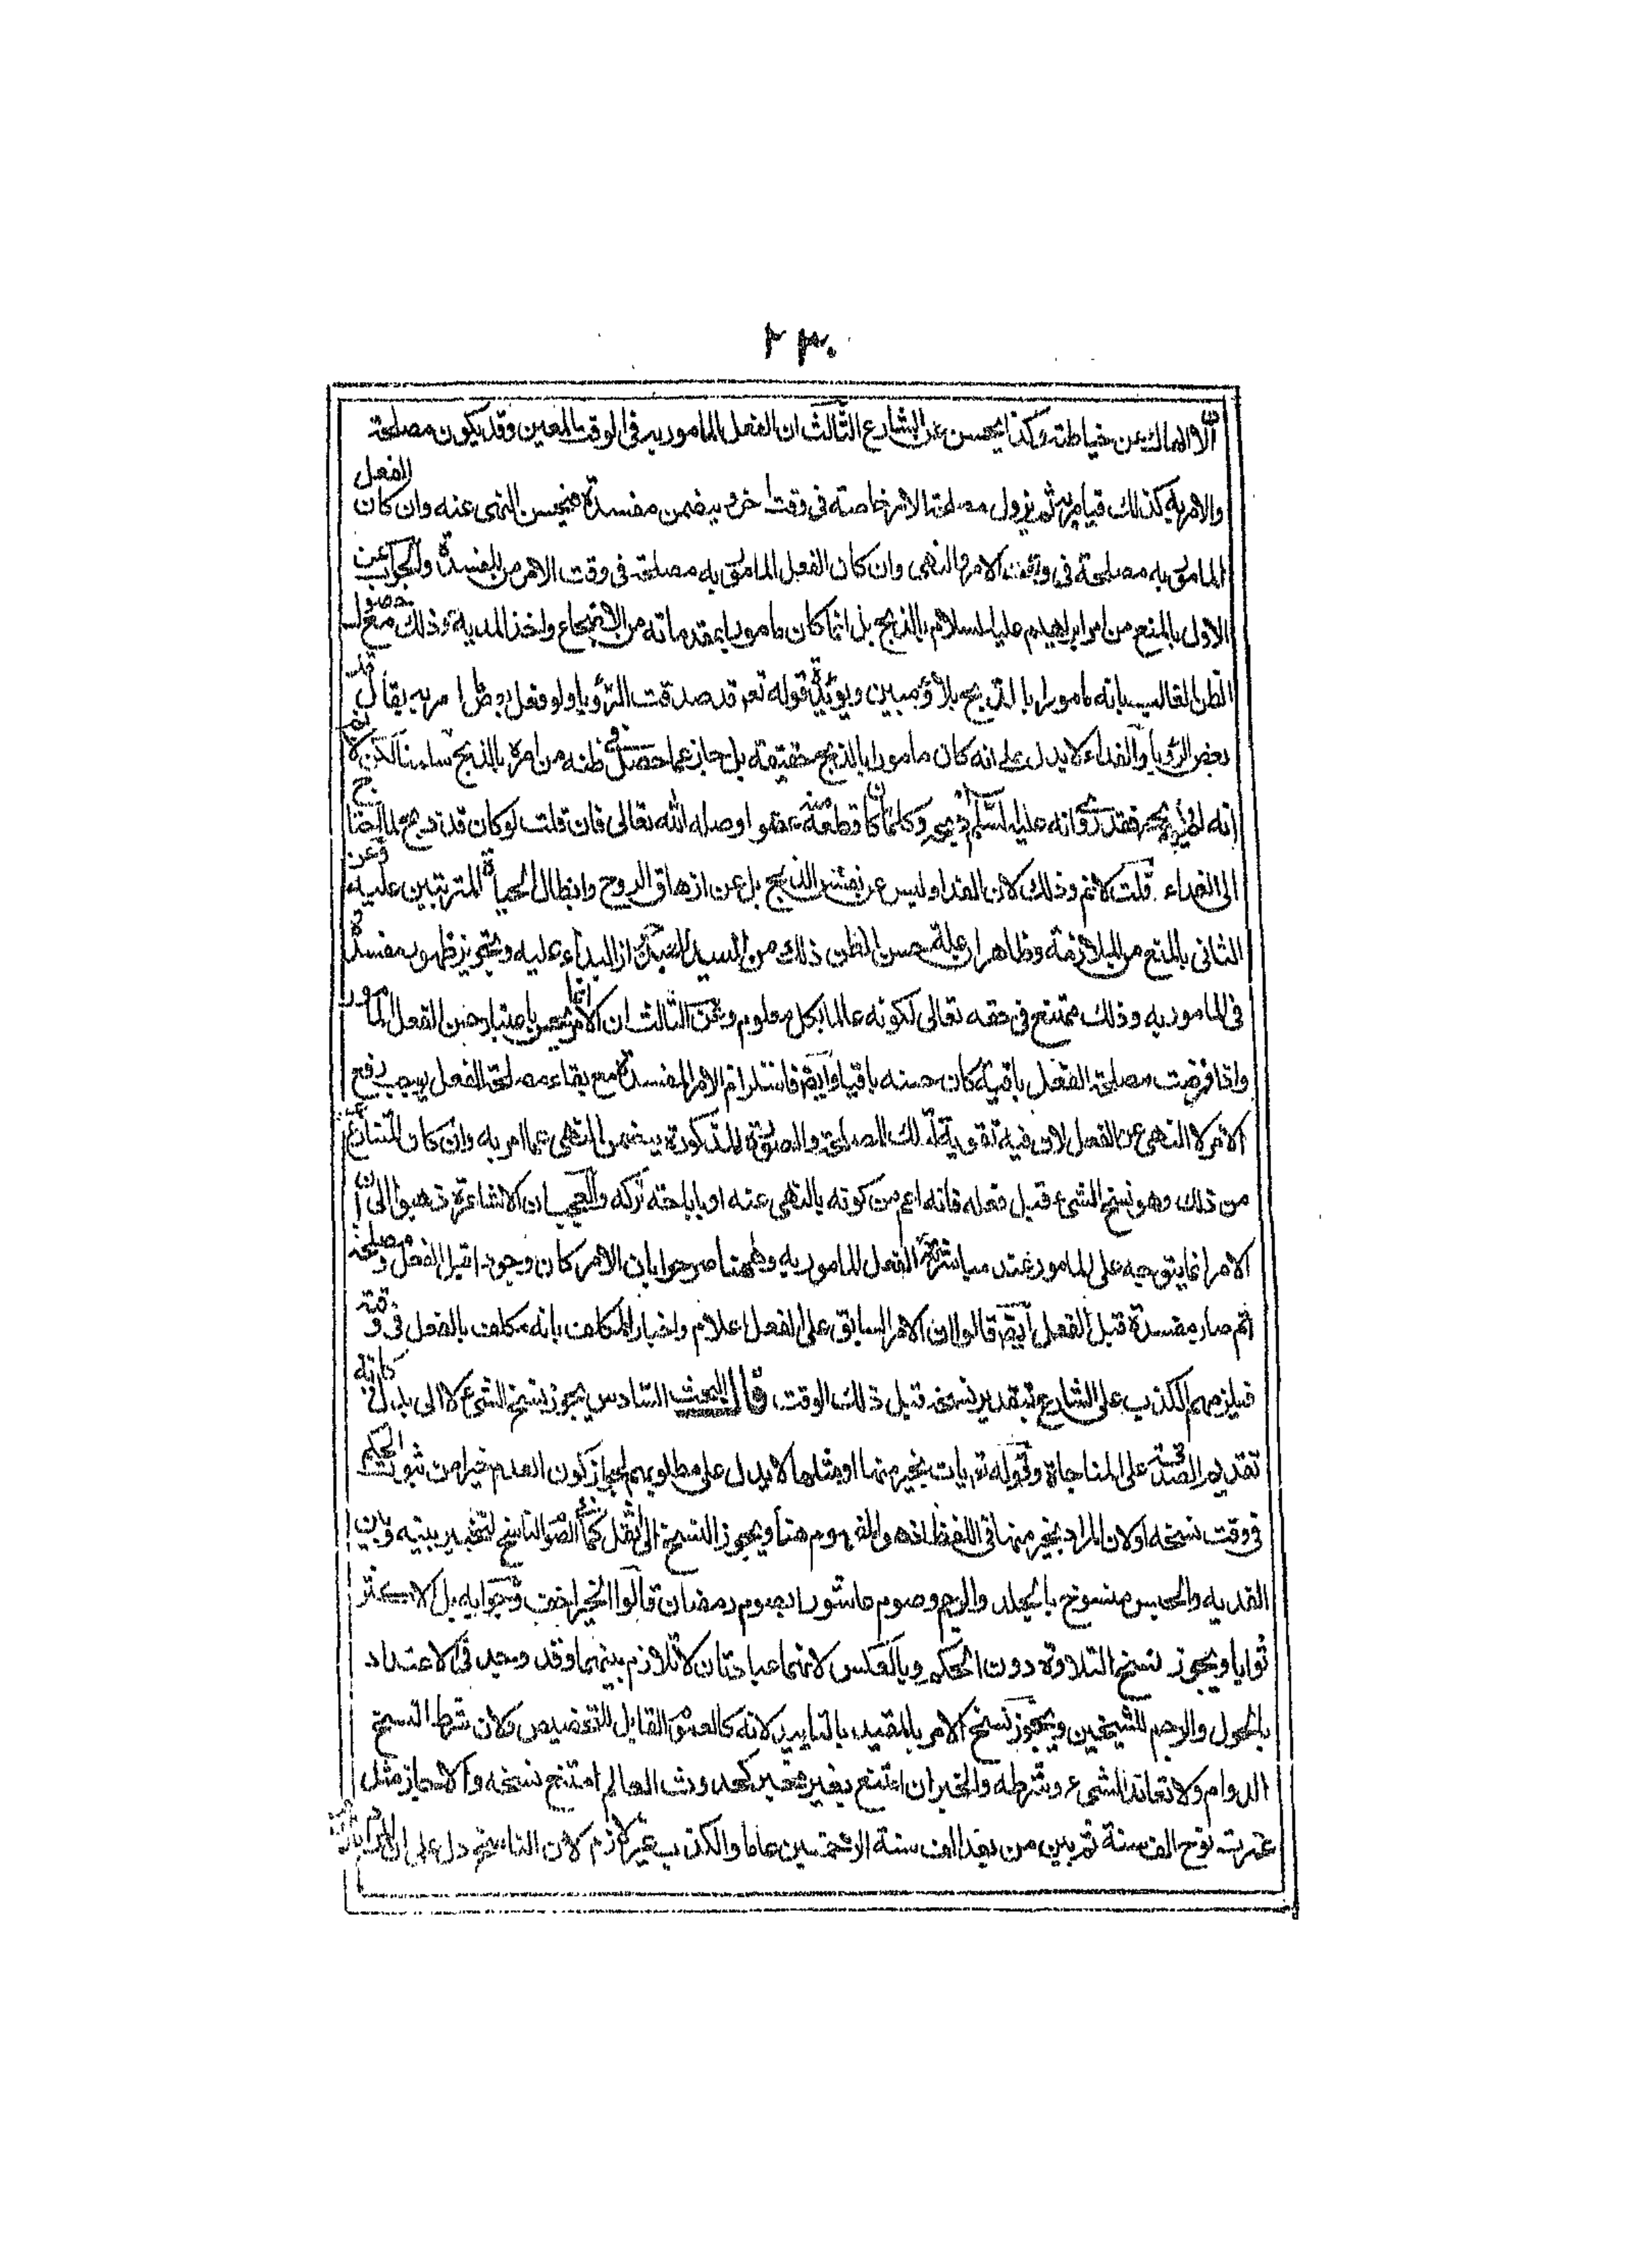 ٢٣٠
الآن اهماله عن خياطته وكذا يحسن من الشارع الثالث ان الفعل المامور به فى الوقت المعين وقد يكون مصلحة
والامر به كذلك ثم يزول مصلحة الامر خاصة فى وقت اخر مفسدة فيحسن النهى عنه وان كان الفعل
المامور به مصلحة فى وقت الامر والنهى وان كان الفعل المامور به مصلحة فى وقت الامر من المفسدة والجواب عن
الاول بالمنع من امر ابراهيم عليه السلام بالذبح بل انما كان مامورا بمقدماته من الاضجاع واخذ المدية وذلك مع حصول
الظن الغالب بانه مامور بالذبح بلاؤ مبين ويؤيده قوله تعم قد صدقت الرؤيا ولو فعل بعض ما امر به يقال قد
بعض الرؤيا والفداء لا يدل على انه كان مامورا بالذبح حقيقة بل جاز عما حصل فى ظنه من امره بالذبح سلمنا لكن لا نم
انه لم يذبح فقد روى انه عليه السلم ذبح وكلما كان قطع منه عضوا وصله الله تعالى فان قلت لو كان قد ذبح لما احتاج
الى الفداء قلت لا نم وذلك لان الفداء ليس عن نفس الذبح بل عن ازهاق الروح وابطال الحياة المترتبين عليه وعن
الثانى بالمنع من الملازمة وظاهر ان علة حسن الظن ذلك من السيد للعبد جواز البداء عليه وتجويز ظهور مفسدة
فى المامور به وذلك ممتنع فى حقه تعالى لكونه عالما بكل معلوم وعن الثالث ان الامر انما يحسن باعتبار حسن الفعل المامور
واذا فرضت مصلحة الفعل باقية كان حسنه باقيا وايضم فاستلزام الامر المفسدة مع بقاء مصلحة الفعل يوجب رفع
الامر لا النهى عن الفعل لان فيه تفويت تلك المصلحة والصورة المذكورة يتضمن النهى عما امر به وان كان المتنازع اعم
من ذلك وهو نسخ الشىء قبل فعله فانه اعم من كونه بالنهى عنه او باباحته تركه والعجب ان الاشاعرة ذهبوا الى ان
الامر انما يتوجه على المامور عند مباشرته الفعل المامور به وههنا صرحوا بان الامر كان وجود قبل الفعل ومصلحة
ثم صار مفسدة قبل الفعل ايضم قالوا ان الامر السابق على الفعل اعلام واخبار المكلف بانه مكلف بالفعل فى وقته
فيلزمهم الكذب على الشارع بتقدير نسخه قبل ذلك الوقت قال البحث السادس يجوز نسخ الشىء لا الى بدل كاية
تقديم الصدقة على المناجاة وقوله تعم نات بخير منها او مثلها لا يدل على مطلوبهم لجواز كون العدم خيرا من ثبوت الحكم
فى وقت نسخه او لان المراد بخير منها فى اللفظ اذ هو المفهوم هنا ويجوز النسخ الى اثقل كما نسخ الصوم الناسخ لتخيير بينه وبين
الفدية والحبس منسوخ بالجلد والرجم وصوم عاشورا بصوم رمضان قالوا الخير اخف وجوابه بل الاكثر
ثوابا ويجوز نسخ التلاوة دون الحكم وبالعكس لانهما عبادتان لا تلازم بينهما وقد وجد فى الاعتداد
بالحول والرجم للشيخين ويجوز نسخ الامر بالمقيد بالتابيد لانه كالعموم القابل للتخصيص ولان شرط النسخ
الدوام ولا تعاند الشىء وشرطه والخبر ان امتنع بغير مخبر كحدوث العالم امتنع نسخه والا جاز مثل
عمرت نوح الف سنة ثم يبين من بعد الف سنة الا خمسين عاما والكذب غير لازم لان الناسخ دل على ان المراد